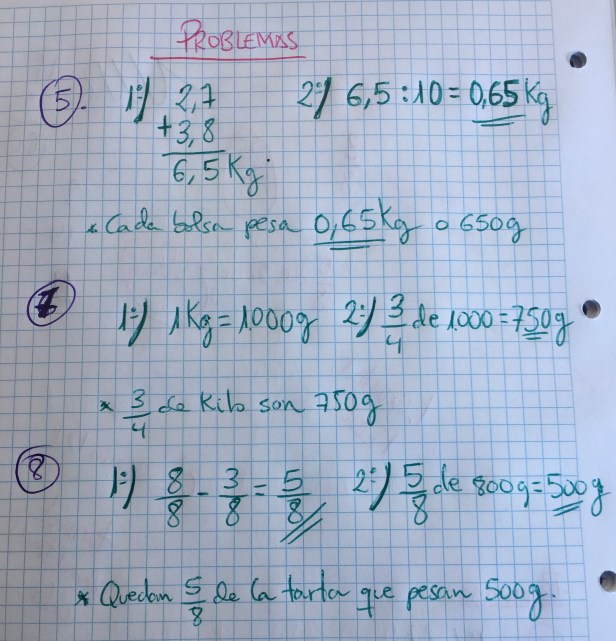 PROBLEMAS
5. 1º) 2,7 2º) 6,5 : 10 = 0,65 Kg
+ 3,8
6,5 Kg.
* Cada bolsa pesa 0,65 Kg o 650 g
7 1º) 1 Kg = 1.000 g 2º) 3/4 de 1.000 = 750 g
* 3/4 de Kilo son 750 g
8 1º) 8/8 - 3/8 = 5/8 2º) 5/8 de 800 g = 500 g
* Quedan 5/8 de la tarta que pesan 500 g.